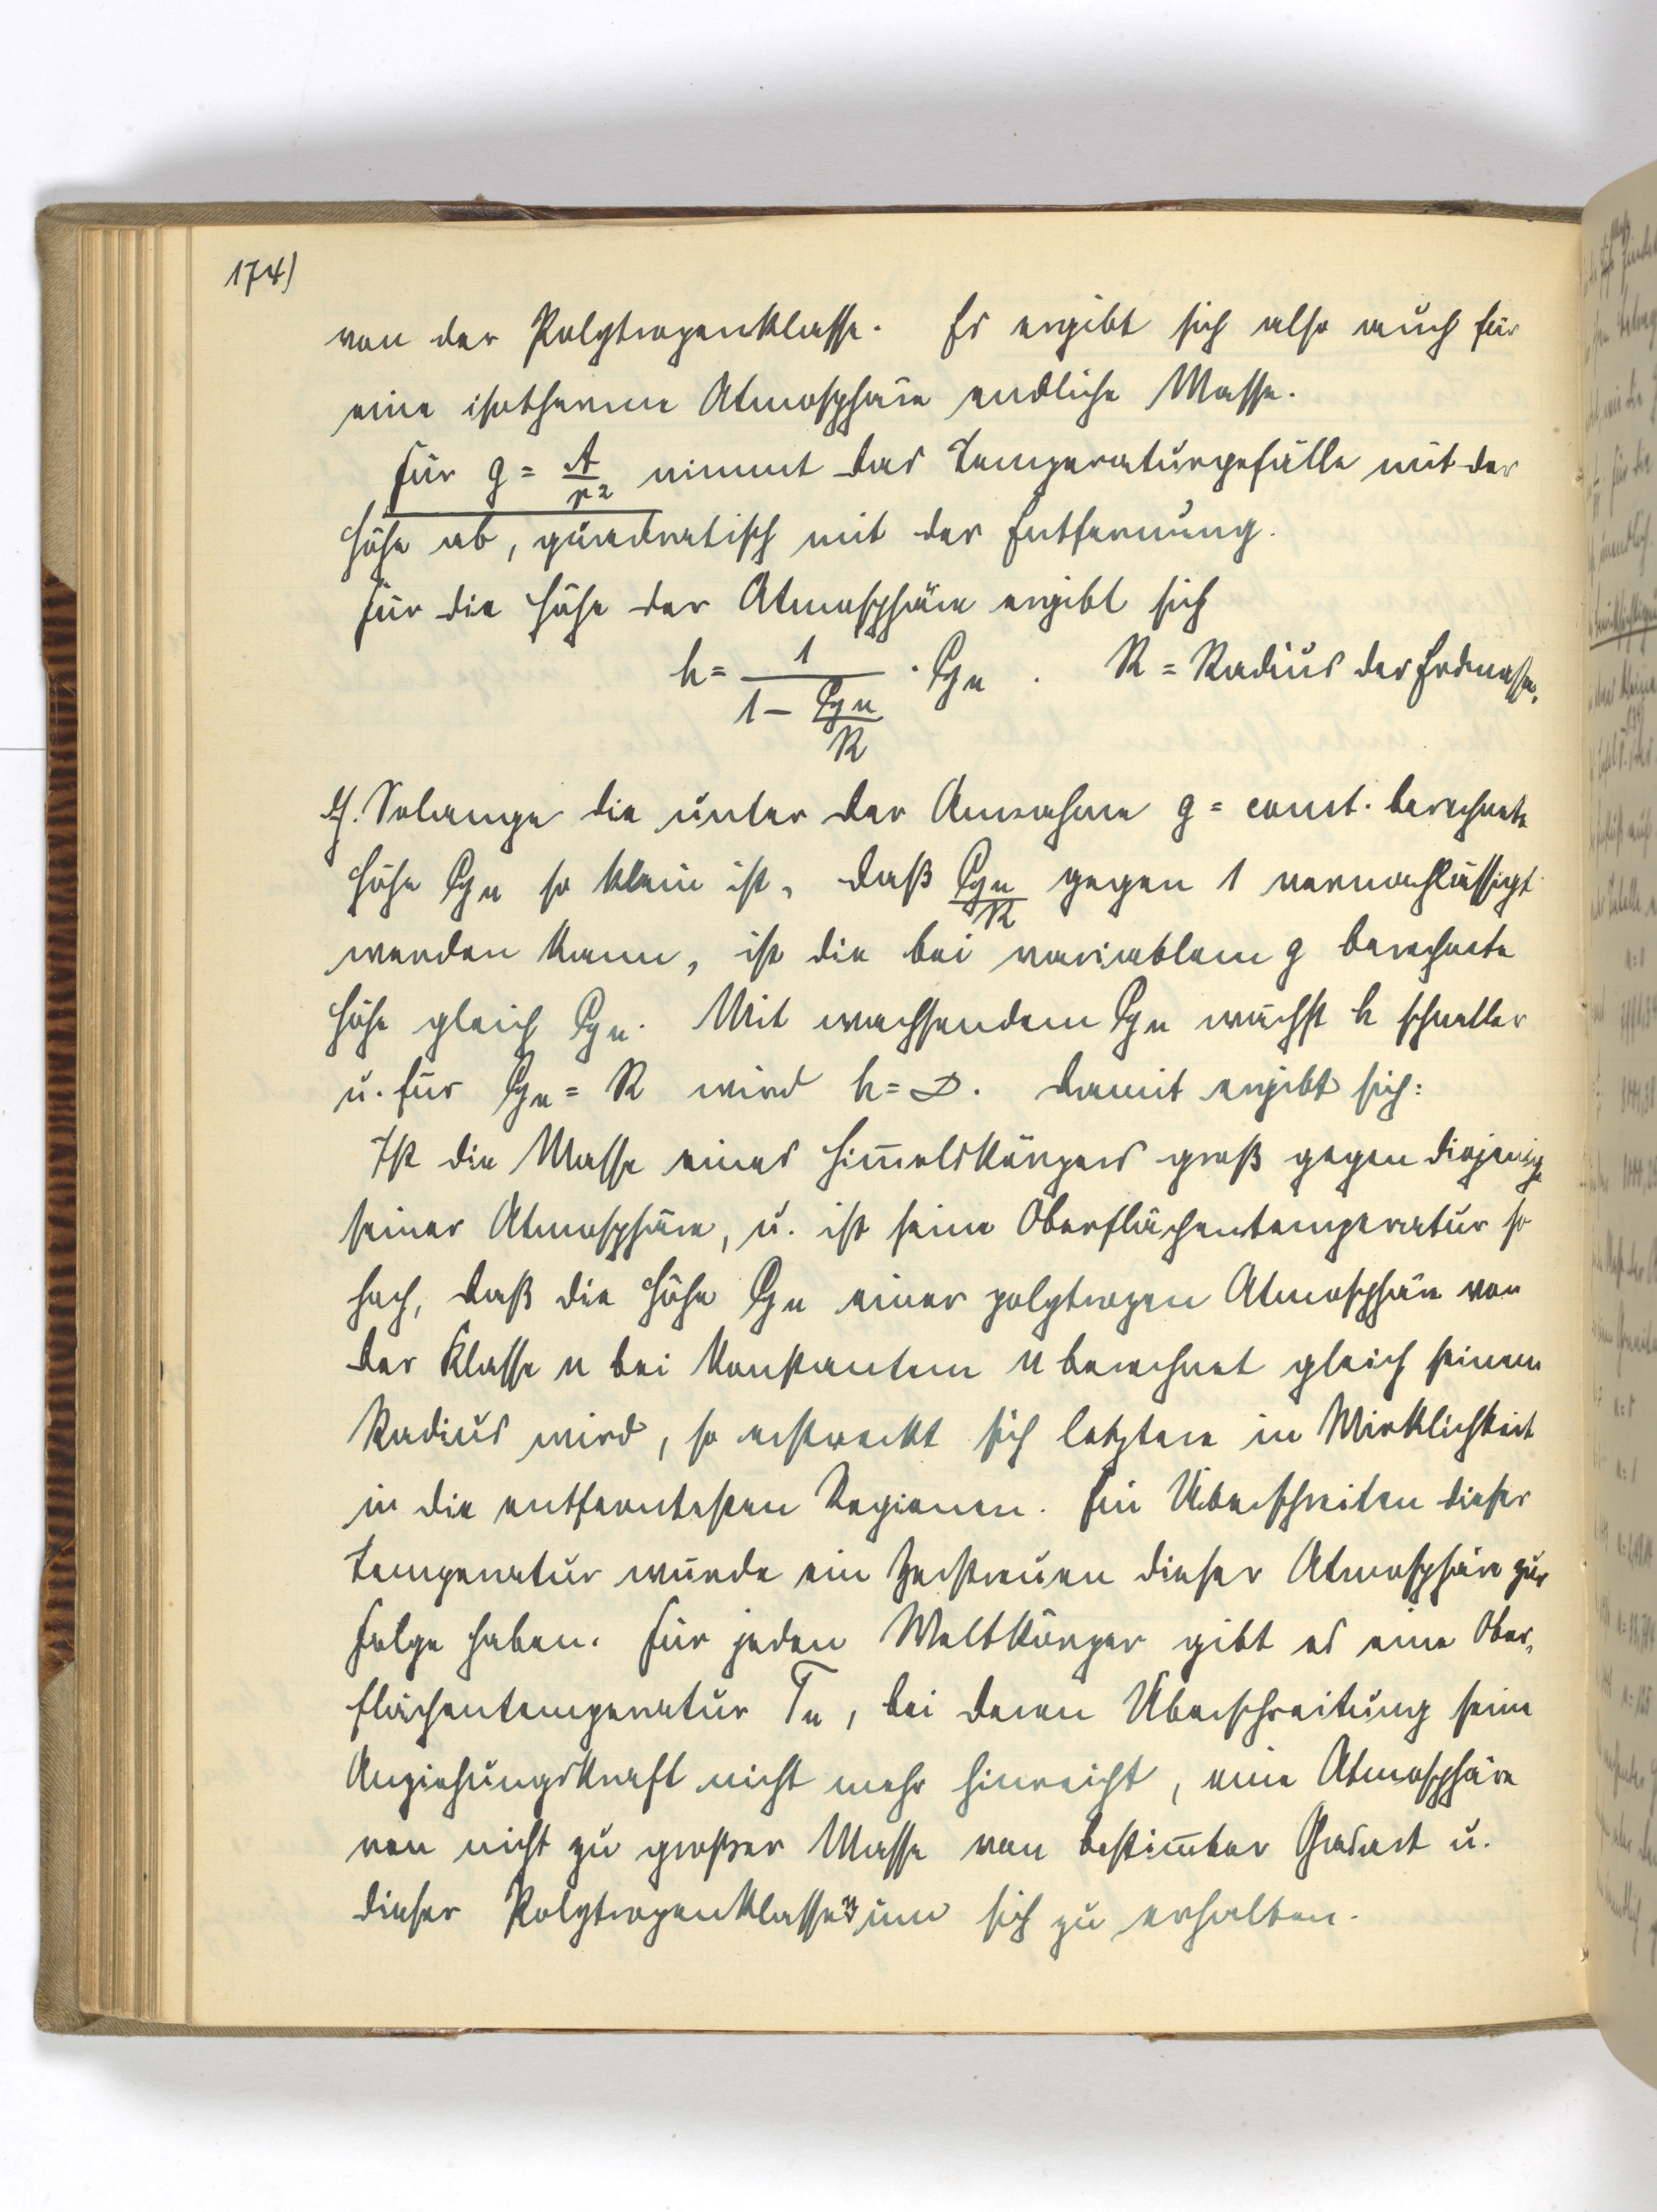 174)
von der Polytropenklasse. Es ergibt sich also auch für
eine isotherme Atmosphäre endliche Masse.
Für g = A/r² nimmt das Temperaturgefälle mit der
Höhe ab, quadratisch mit der Entfernung.
Für die Höhe der Atmosphäre ergibt sich
h = 1/(1 − ℘n/R) · ℘n . R = Radius der Erdmasse.
Solange die unter der Annahme g = const. berechnete
Höhe ℘n so klein ist, daß ℘n/R gegen 1 vernachlässigt
werden kann, ist die bei variablem g berechnete
Höhe gleich ℘n. Mit wachsendem ℘n wächst h schneller
u. für ℘n = R wird h = ∞. Damit ergibt sich:
Ist die Masse eines Him̅elskörpers groß gegen diejenige
seiner Atmosphäre, u. ist seine Oberflächentemperatur so
hoch, daß die Höhe ℘n einer polytropen Atmosphäre von
der Klasse n bei konstantem n berechnet gleich seinem
Radius wird, so erstreckt sich letztere in Wirklichkeit
in die entferntesten Regionen. Ein Überschreiten dieser
Temperatur würde ein Zerstreuen dieser Atmosphäre zur
Folge haben. Für jeden Weltkörper gibt es eine Ober-
flächentemperatur Tn, bei deren Überschreitung seine
Anziehungskraft nicht mehr hinreicht, eine Atmosphäre
von nicht zu großer Masse von bestim̅ter Gasart u.
dieser Polytropenklasse n um sich zu erhalten.